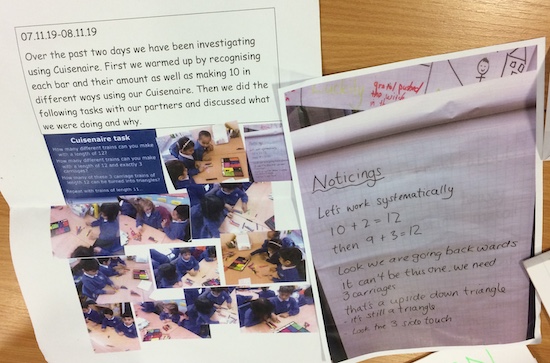 07.11.19-08.11.19
Over the past two days we have been investigating
using Cuisenaire. First we warmed up by recognising
each bar and their amount as well as making 10 in
different ways using our Cuisenaire. Then we did the
following tasks with our partners and discussed what
we were doing and why.
Cuisenaire task
How many different trains can you make
with a length of 12?
How many different trains can you make
with a length of 12 and exactly 3
carriages?
How many of these 3 carriage trains of
length 12 can be turned into triangles?
Repeat with trains of length 11.
Noticings
Let's work systematically
10 + 2 = 12
then 9 + 3 = 12
Look we are going backwards
it can't be this one. we need
3 carriages
that's a upside down triangle
- it's still a triangle
- Look the 3 sides touch